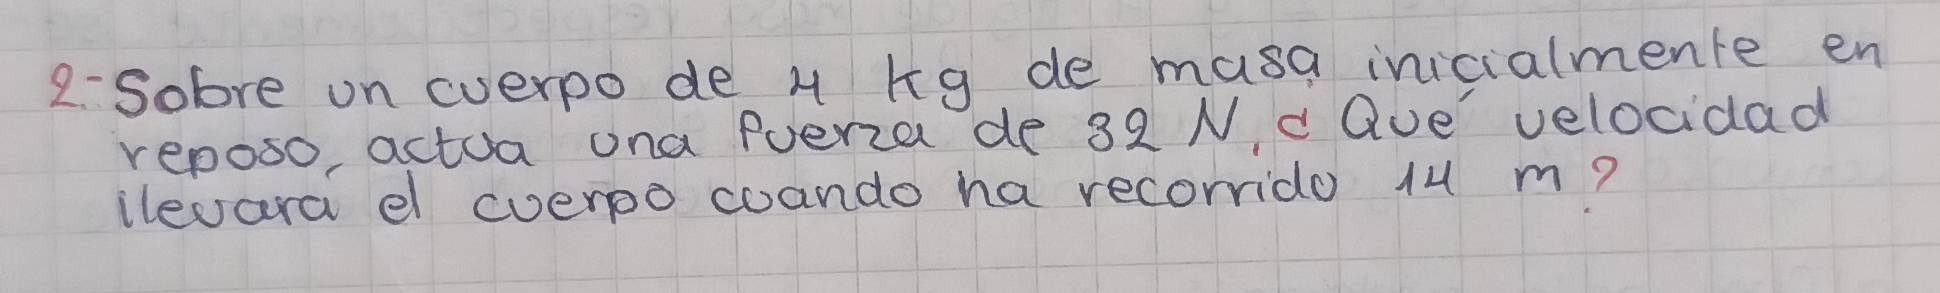 2.- Sobre un cuerpo de 4 kg de masa inicialmente en
reposo, actua una fuerza de 32 N, ¿ Qué velocidad
llevará el cuerpo cuando ha recorrido 14 m?